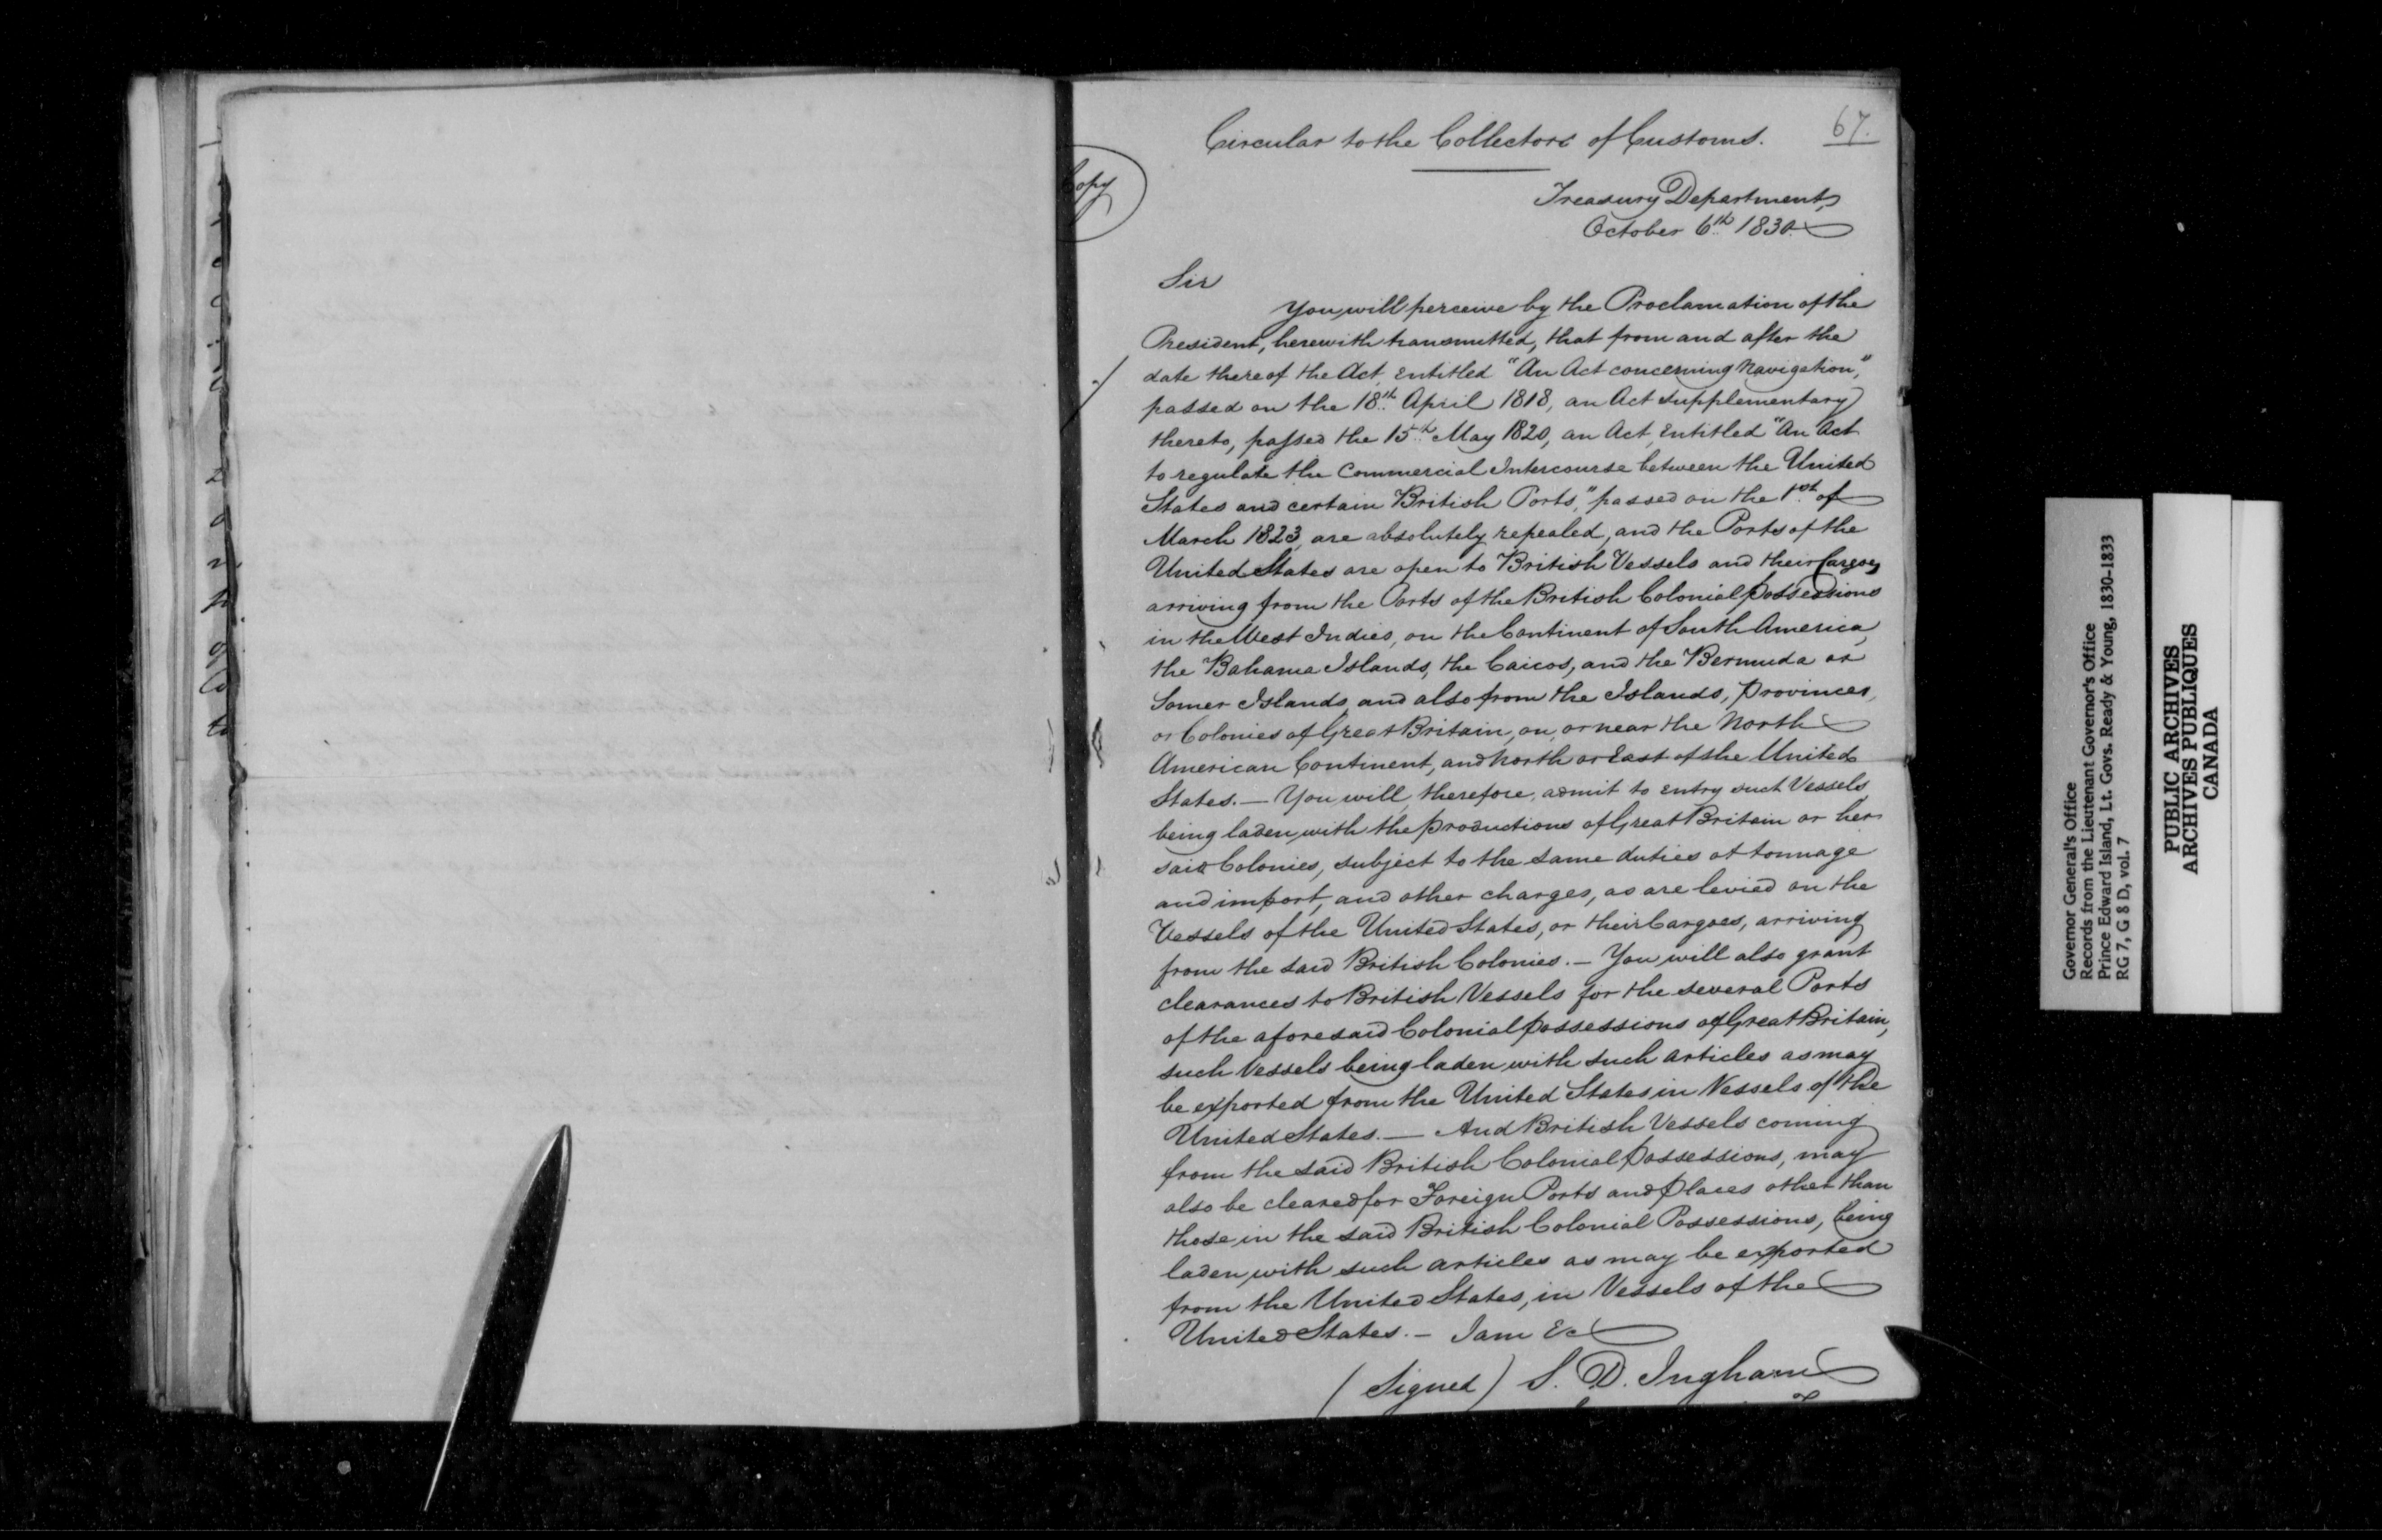 67.
Circular to the Collectors of Customs.
Copy
Treasury Department,
October 6th 1830
Sir
You will perceive by the Proclamation of the
President, herewith transmitted, that from and after the
date thereof the Act, Entitled "An Act concerning Navigation,"
passed on the 18th April 1818, an Act supplementary
thereto, passed the 15th May 1820, an Act, Entitled "An Act
to regulate the Commercial Intercourse between the United
States and certain British Ports," passed on the 1st of
March 1823, are absolutely repealed, and the Ports of the
United States are open to British Vessels and their Cargoes
arriving from the Ports of the British Colonial possessions
in the West Indies, on the Continent of South America,
the Bahama Islands, the Caicos, and the Bermuda or
Somer Islands, and also from the Islands, provinces,
or Colonies of Great Britain, on, or near the North
American Continent, and North or East of the United
States. — You will, therefore, admit to Entry such Vessels,
being laden, with the productions of Great Britain or her
said Colonies, subject to the same duties of tonnage
and import, and other charges, as are levied on the
Vessels of the United States, or their Cargoes, arriving
from the said British Colonies. — You will also grant
clearances to British Vessels for the several Ports
of the aforesaid Colonial possessions of Great Britain,
such Vessels being laden with such articles as may
be exported from the United States in Vessels of the
United States. — And British Vessels coming
from the said British Colonial possessions, may
also be cleared for Foreign Ports and places other than
those in the said British Colonial Possessions, being
laden, with such articles as may be exported
from the United States, in Vessels of the
United States. — I am &c
(Signed) S. D. Ingham
Governor General's Office
Records from the Lieutenant Governor's Office
Prince Edward Island, Lt. Govs. Ready & Young, 1830-1833
RG 7, G 8 D, vol. 7
PUBLIC ARCHIVES
ARCHIVES PUBLIQUES
CANADA